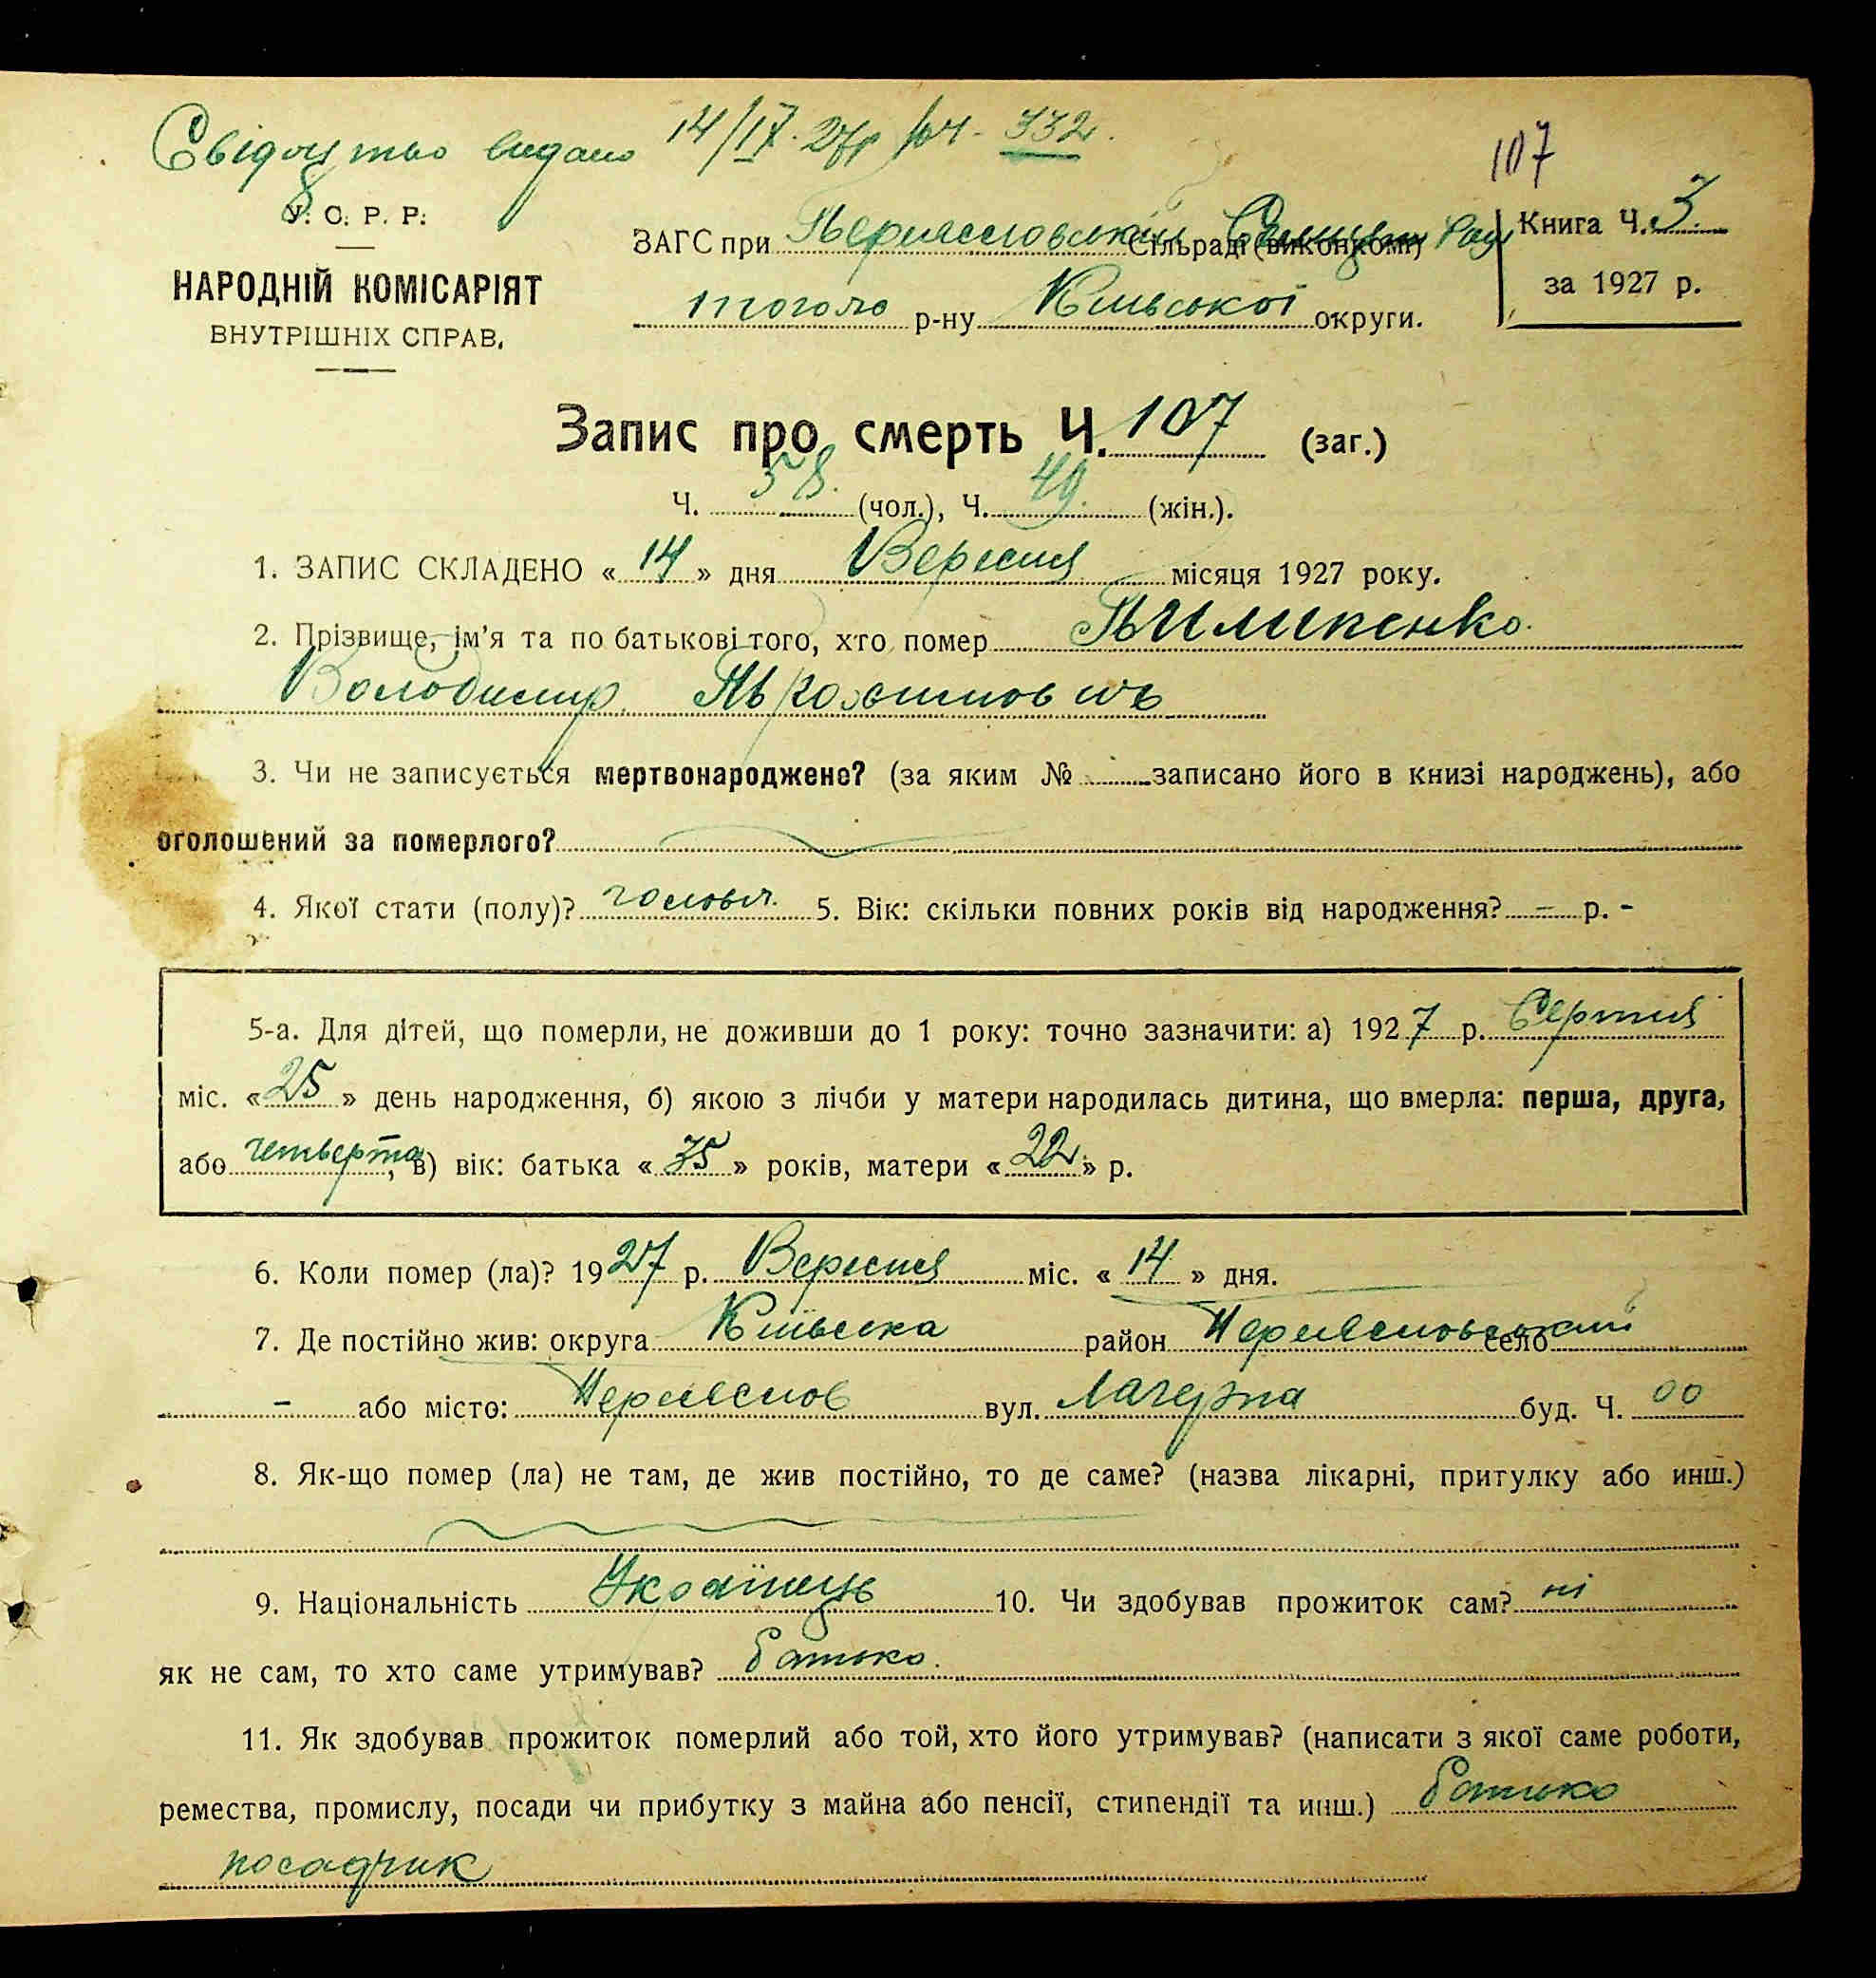 Свідоцтво видано 14/IX 27р Ч- 332.
107
У. С. Р. Р.
НАРОДНІЙ КОМІСАРІЯТ
ВНУТРІШНІХ СПРАВ.
ЗАГС при Переяславській Сільраді (виконкомі)
того ж р-ну Київської округи.
Книга Ч. 3.
за 1927 р.
Запис про смерть Ч. 107 (заг.)
Ч. 58. (чол.), Ч. 49. (жін.).
1. ЗАПИС СКЛАДЕНО « 14 » дня Вересня місяця 1927 року.
2. Прізвище, ім'я та по батькові того, хто помер Пилипенко.
Володимир
3. Чи не записується мертвонароджене? (за яким № записано його в книзі народжень), або
оголошений за померлого?
4. Якої стати (полу)? чолов. 5. Вік: скільки повних років від народження? – р. -
5-а. Для дітей, що померли, не доживши до 1 року: точно зазначити: а) 1927 р. Серпня
міс. « 25 » день народження, б) якою з лічби у матери народилась дитина, що вмерла: перша, друга,
або четверта, в) вік: батька « 35 » років, матери « 22 » р.
6. Коли помер (ла)? 1927 р. Вересня міс. « 14 » дня.
7. Де постійно жив: округа Київська район Переяславський село
– або місто: Переяслов вул. буд. Ч. 00
8. Як-що помер (ла) не там, де жив постійно, то де саме? (назва лікарні, притулку або инш.)
9. Національність Українець 10. Чи здобував прожиток сам? ні
як не сам, то хто саме утримував? батько.
11. Як здобував прожиток померлий або той, хто його утримував? (написати з якої саме роботи,
ремества, промислу, посади чи прибутку з майна або пенсії, стипендії та инш.) батько